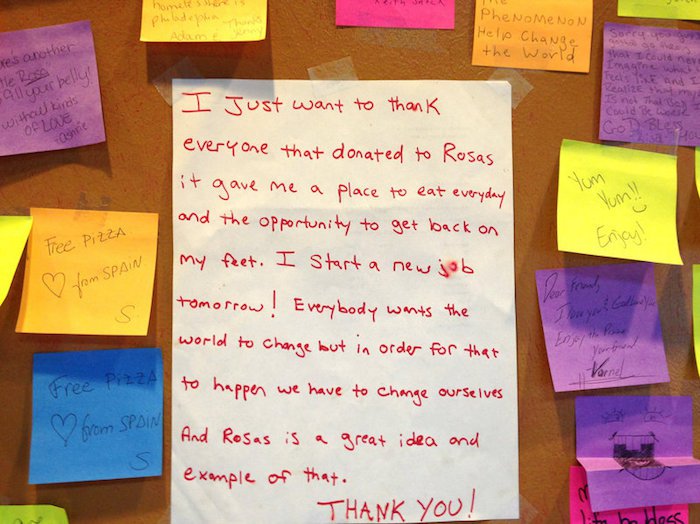 homeless here is
Philadelphia
Thanks
Adam E. Jenny
Keith
PheNoMeNoN
Help Change
the World
Sorry you guys
that I could never
Imagine
feels like and
Realize that
Is not that Bad
Could Be Worse
GoD Bless
another
Rosa
fill your belly!
without kinds
OF LOVE
I Just want to thank
everyone that donated to Rosas
it gave me a place to eat everyday
and the opportunity to get back on
my feet. I start a new job
tomorrow! Everybody wants the
world to change but in order for that
to happen we have to change ourselves
And Rosas is a great idea and
example of that.
THANK YOU!
Free PIZZA
♡ from SPAIN
S.
Free PIZZA
♡ from SPAIN
S
Yum
Yum!!
Enjoy!
Dear Friend,
I love you & God loves you
Enjoy the Pizza
your friend
Bless